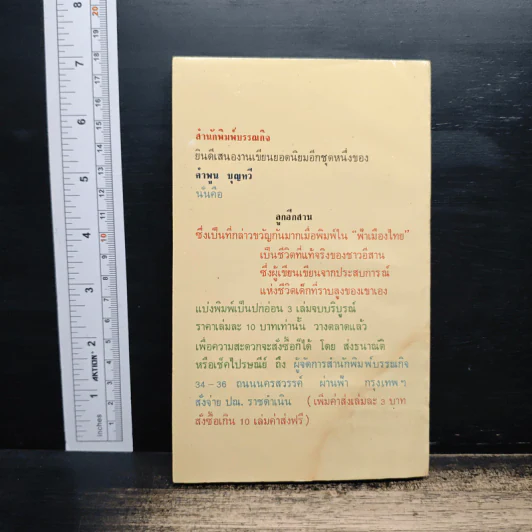 สำนักพิมพ์บรรณกิจ
ยินดีเสนองานเขียนยอดนิยมอีกชุดหนึ่งของ
คำพูน บุญทวี
นั่นคือ
ลูกอีสาน
ซึ่งเป็นที่กล่าวขวัญกันมากเมื่อพิมพ์ใน "ฟ้าเมืองไทย"
เป็นชีวิตที่แท้จริงของชาวอีสาน
ซึ่งผู้เขียนเขียนจากประสบการณ์
แห่งชีวิตเด็กที่ราบสูงของเขาเอง
แบ่งพิมพ์เป็นปกอ่อน 3 เล่มจบบริบูรณ์
ราคาเล่มละ 10 บาทเท่านั้น วางตลาดแล้ว
เพื่อความสะดวกจะสั่งซื้อก็ได้ โดย ส่งธนาณัติ
หรือเช็คไปรษณีย์ ถึง ผู้จัดการสำนักพิมพ์บรรณกิจ
34-36 ถนนนครสวรรค์ ผ่านฟ้า กรุงเทพฯ
สั่งจ่าย ปณ. ราชดำเนิน (เพิ่มค่าส่งเล่มละ 3 บาท
สั่งซื้อเกิน 10 เล่มค่าส่งฟรี)
8
7
6
5
4
3
2
1
inches
AKTION